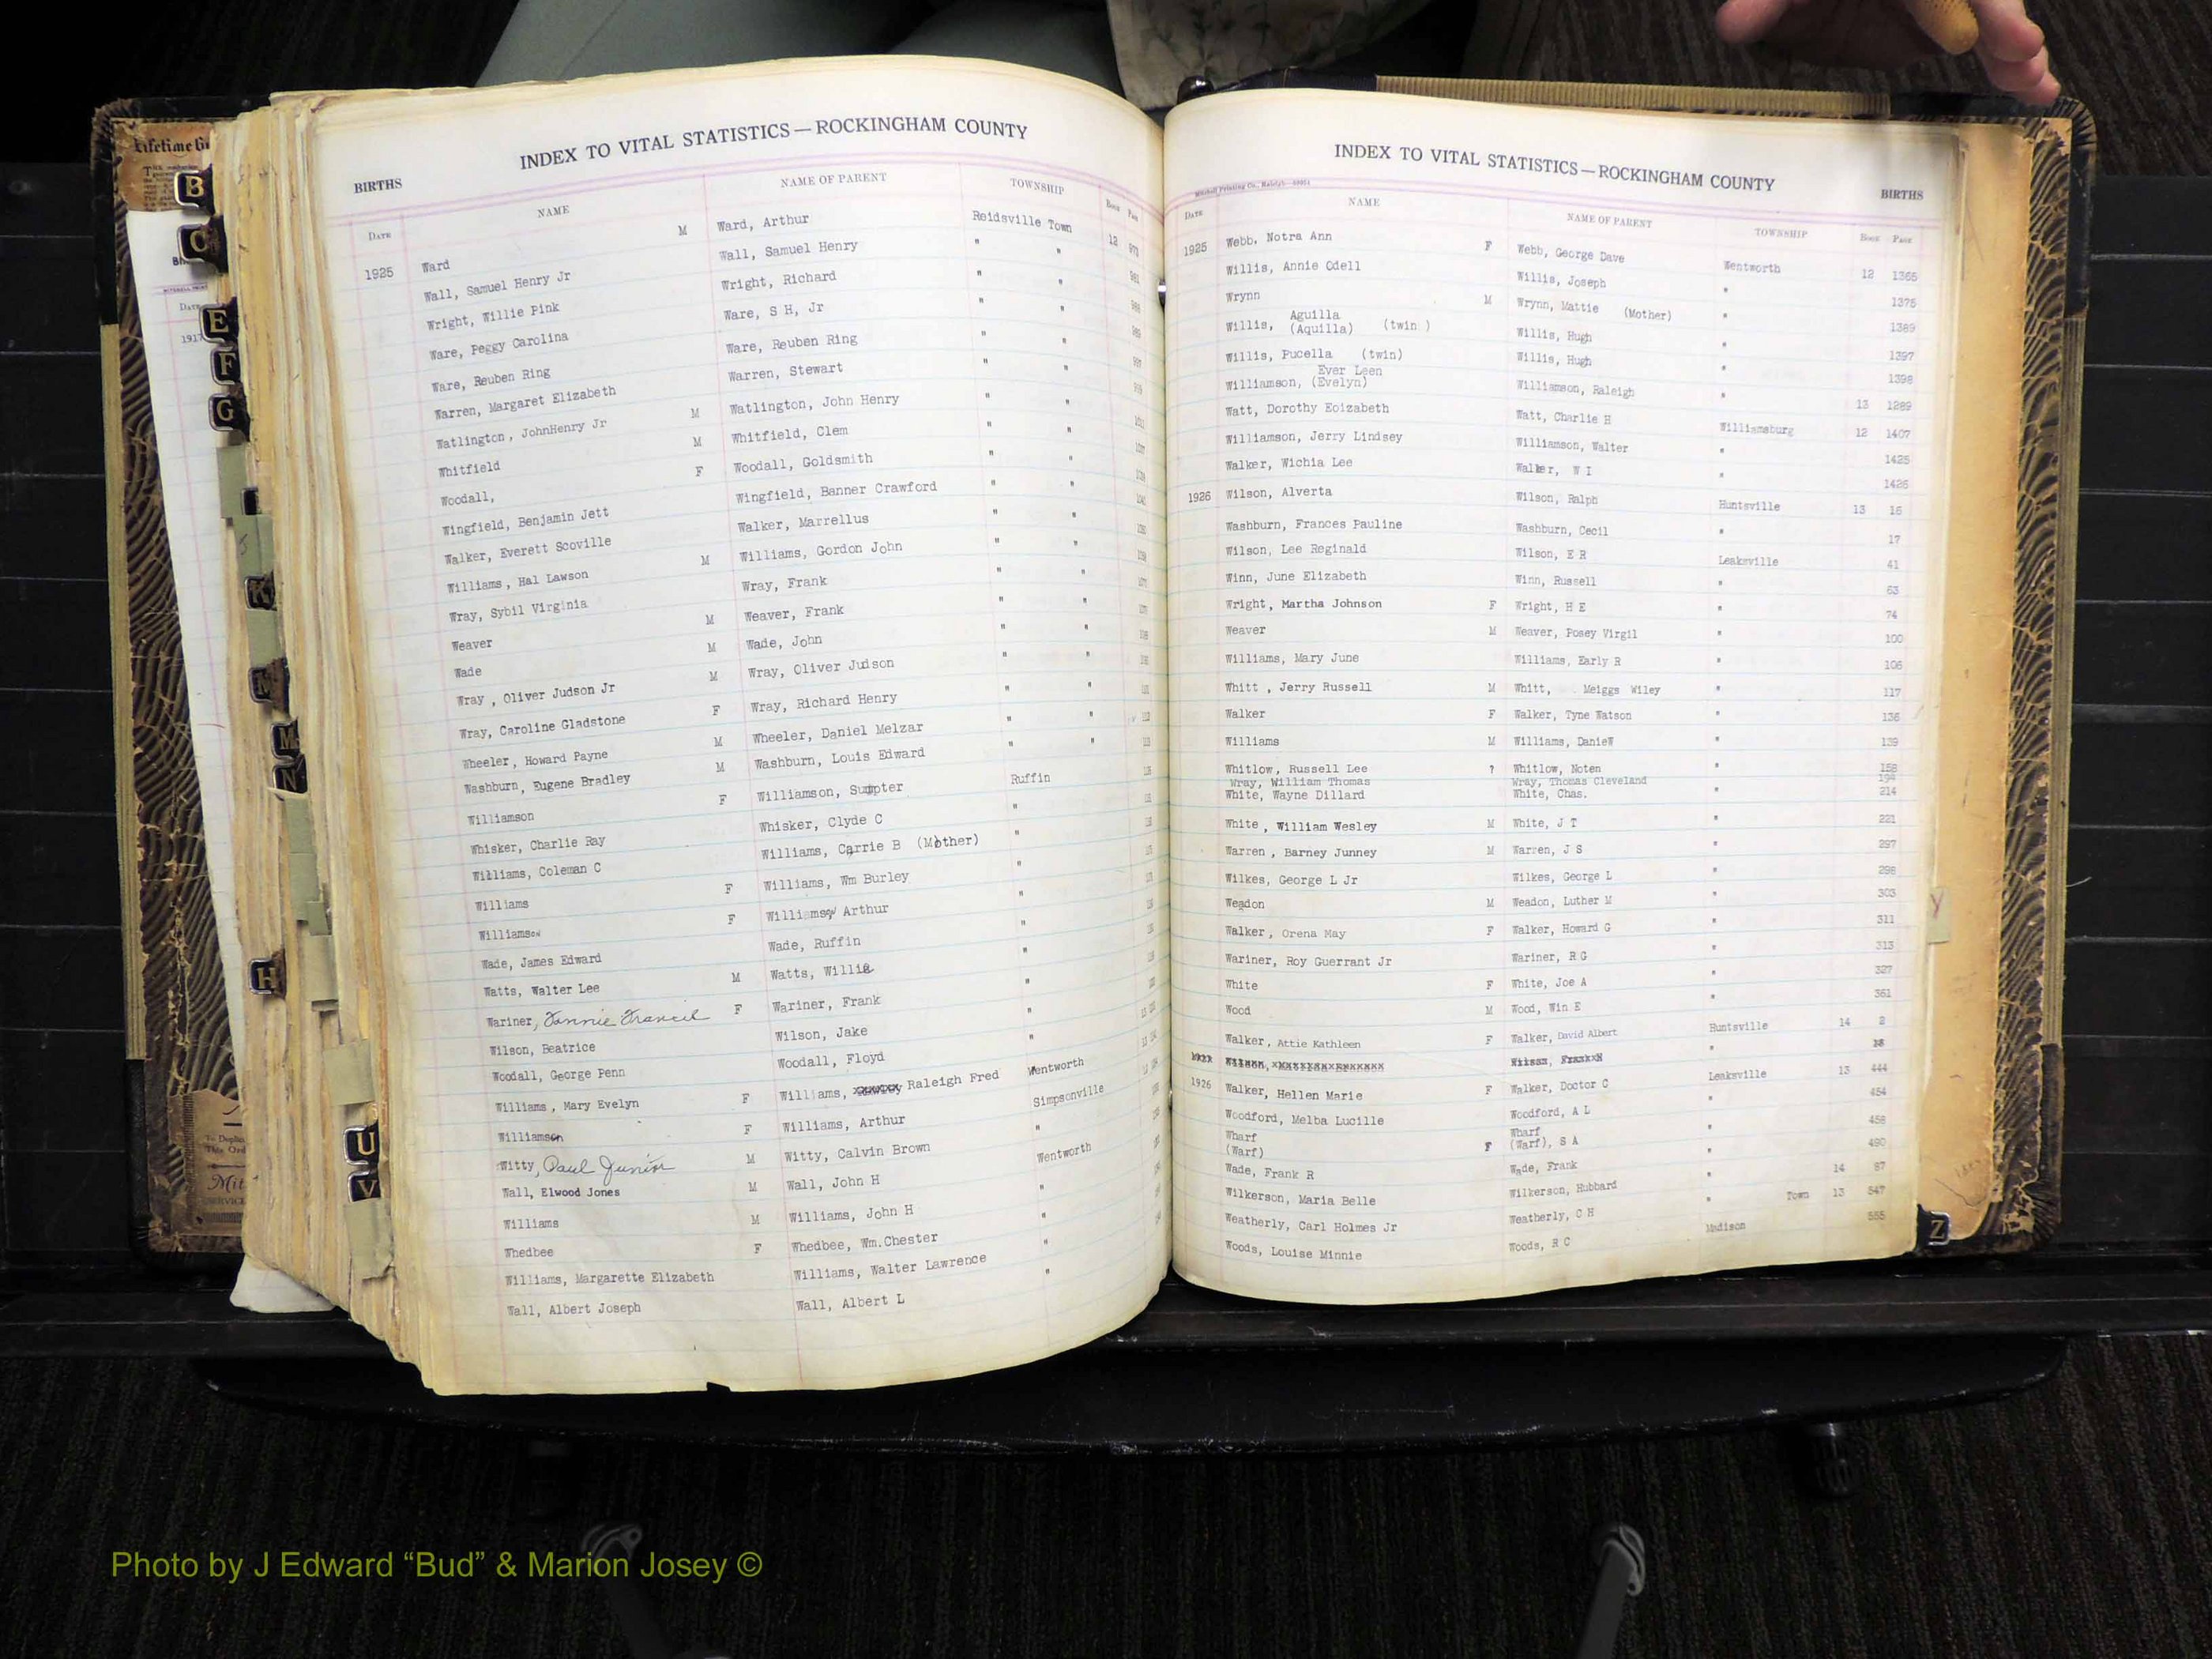 INDEX TO VITAL STATISTICS—ROCKINGHAM COUNTY
BIRTHS
DATE NAME NAME OF PARENT TOWNSHIP Book Page
1925 Ward M Ward, Arthur Reidsville Town 12
Wall, Samuel Henry Jr Wall, Samuel Henry " "
Wright, Willie Pink Wright, Richard " "
Ware, Peggy Carolina Ware, S H, Jr " "
Ware, Reuben Ring Ware, Reuben Ring " "
Warren, Margaret Elizabeth Warren, Stewart " "
Watlington, JohnHenry Jr M Watlington, John Henry " "
Whitfield M Whitfield, Clem " "
Woodall, F Woodall, Goldsmith " "
Wingfield, Benjamin Jett Wingfield, Banner Crawford " "
Walker, Everett Scoville Walker, Marrellus " "
Williams, Hal Lawson M Williams, Gordon John " "
Wray, Sybil Virginia Wray, Frank " "
Weaver M Weaver, Frank " "
Wade M Wade, John " "
Wray , Oliver Judson Jr M Wray, Oliver Judson " "
Wray, Caroline Gladstone F Wray, Richard Henry " "
Wheeler, Howard Payne M Wheeler, Daniel Melzar " "
Washburn, Eugene Bradley M Washburn, Louis Edward " "
Williamson F Williamson, Sumpter Ruffin
Whisker, Charlie Ray Whisker, Clyde C "
Williams, Coleman C Williams, Carrie B (Mother) "
Williams F Williams, Wm Burley "
Williamson F Williamson Arthur "
Wade, James Edward Wade, Ruffin "
Watts, Walter Lee M Watts, Willie "
Wariner, Fannie Francis F Wariner, Frank "
Wilson, Beatrice Wilson, Jake "
Woodall, George Penn Woodall, Floyd "
Williams, Mary Evelyn F Williams, Raleigh Fred Wentworth
Williamson F Williams, Arthur Simpsonville
Witty, Paul Junior M Witty, Calvin Brown "
Wall, Elwood Jones M Wall, John H Wentworth
Williams M Williams, John H "
Whedbee F Whedbee, Wm.Chester "
Williams, Margarette Elizabeth Williams, Walter Lawrence "
Wall, Albert Joseph Wall, Albert L "
INDEX TO VITAL STATISTICS—ROCKINGHAM COUNTY
BIRTHS
Mitchell Printing Co., Raleigh
DATE NAME NAME OF PARENT TOWNSHIP Book Page
1925 Webb, Notra Ann F Webb, George Dave Wentworth 12 1365
Willis, Annie Odell Willis, Joseph " 1375
Wrynn M Wrynn, Mattie (Mother) " 1389
Aguilla
Willis, (Aquilla) (twin ) Willis, Hugh " 1397
Willis, Pucella (twin) Willis, Hugh " 1398
Ever Leen
Williamson, (Evelyn) Williamson, Raleigh " 13 1289
Watt, Dorothy Eoizabeth Watt, Charlie H Williamsburg 12 1407
Williamson, Jerry Lindsey Williamson, Walter " 1425
Walker, Wichia Lee Walker, W I " 1426
1926 Wilson, Alverta Wilson, Ralph Huntsville 13 16
Washburn, Frances Pauline Washburn, Cecil " 17
Wilson, Lee Reginald Wilson, E R Leaksville 41
Winn, June Elizabeth Winn, Russell " 63
Wright, Martha Johnson F Wright, H E " 74
Weaver M Weaver, Posey Virgil " 100
Williams, Mary June Williams, Early R " 106
Whitt , Jerry Russell M Whitt, Meiggs Wiley " 117
Walker F Walker, Tyne Watson " 136
Williams M Williams, Daniel " 139
Whitlow, Russell Lee ? Whitlow, Noten " 158
Wray, William Thomas Wray, Thomas Cleveland 194
White, Wayne Dillard White, Chas. " 214
White , William Wesley M White, J T " 221
Warren , Barney Junney M Warren, J S " 297
Wilkes, George L Jr Wilkes, George L " 298
Weadon M Weadon, Luther M " 303
Walker, Orena May F Walker, Howard G " 311
Wariner, Roy Guerrant Jr Wariner, R G " 313
White F White, Joe A " 327
Wood M Wood, Win E " 361
Walker, Attie Kathleen F Walker, David Albert Huntsville 14 2
"
1926 Walker, Hellen Marie F Walker, Doctor C Leaksville 13 444
Woodford, Melba Lucille Woodford, A L " 454
Wharf Wharf
(Warf) F (Warf), S A " 458
Wade, Frank R Wade, Frank " 490
Wilkerson, Maria Belle Wilkerson, Hubbard " 14 87
Weatherly, Carl Holmes Jr Weatherly, C H " Town 13 547
Woods, Louise Minnie Woods, R C Madison 555
B
C
E
F
G
K
M
N
H
U
V
Y
Z
1917
Photo by J Edward “Bud” & Marion Josey ©